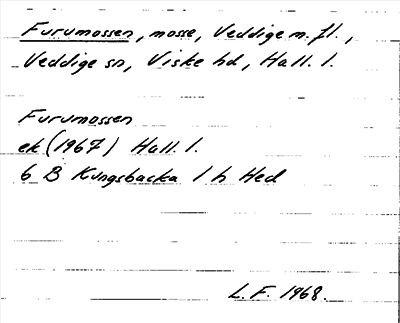 Furumossen, mosse, Veddige m. fl.,
Veddige sn, Viske hd, Hall. l.
Furumossen
ek (1967) Hall. l.
6 B Kungsbacka 1 h Hed
L. F. 1968.